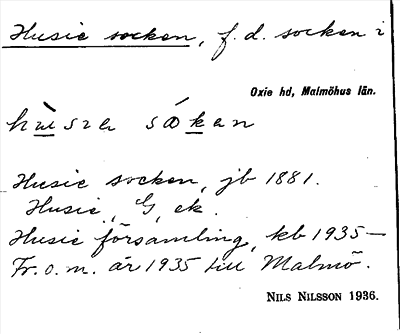 Husie socken, f.d. socken i
Oxie hd, Malmöhus län.
Husie socken, jb 1881.
Husie, G, ek.
Husie församling, kb 1935—
Fr.o.m. år 1935 till Malmö.
NILS NILSSON 1936.